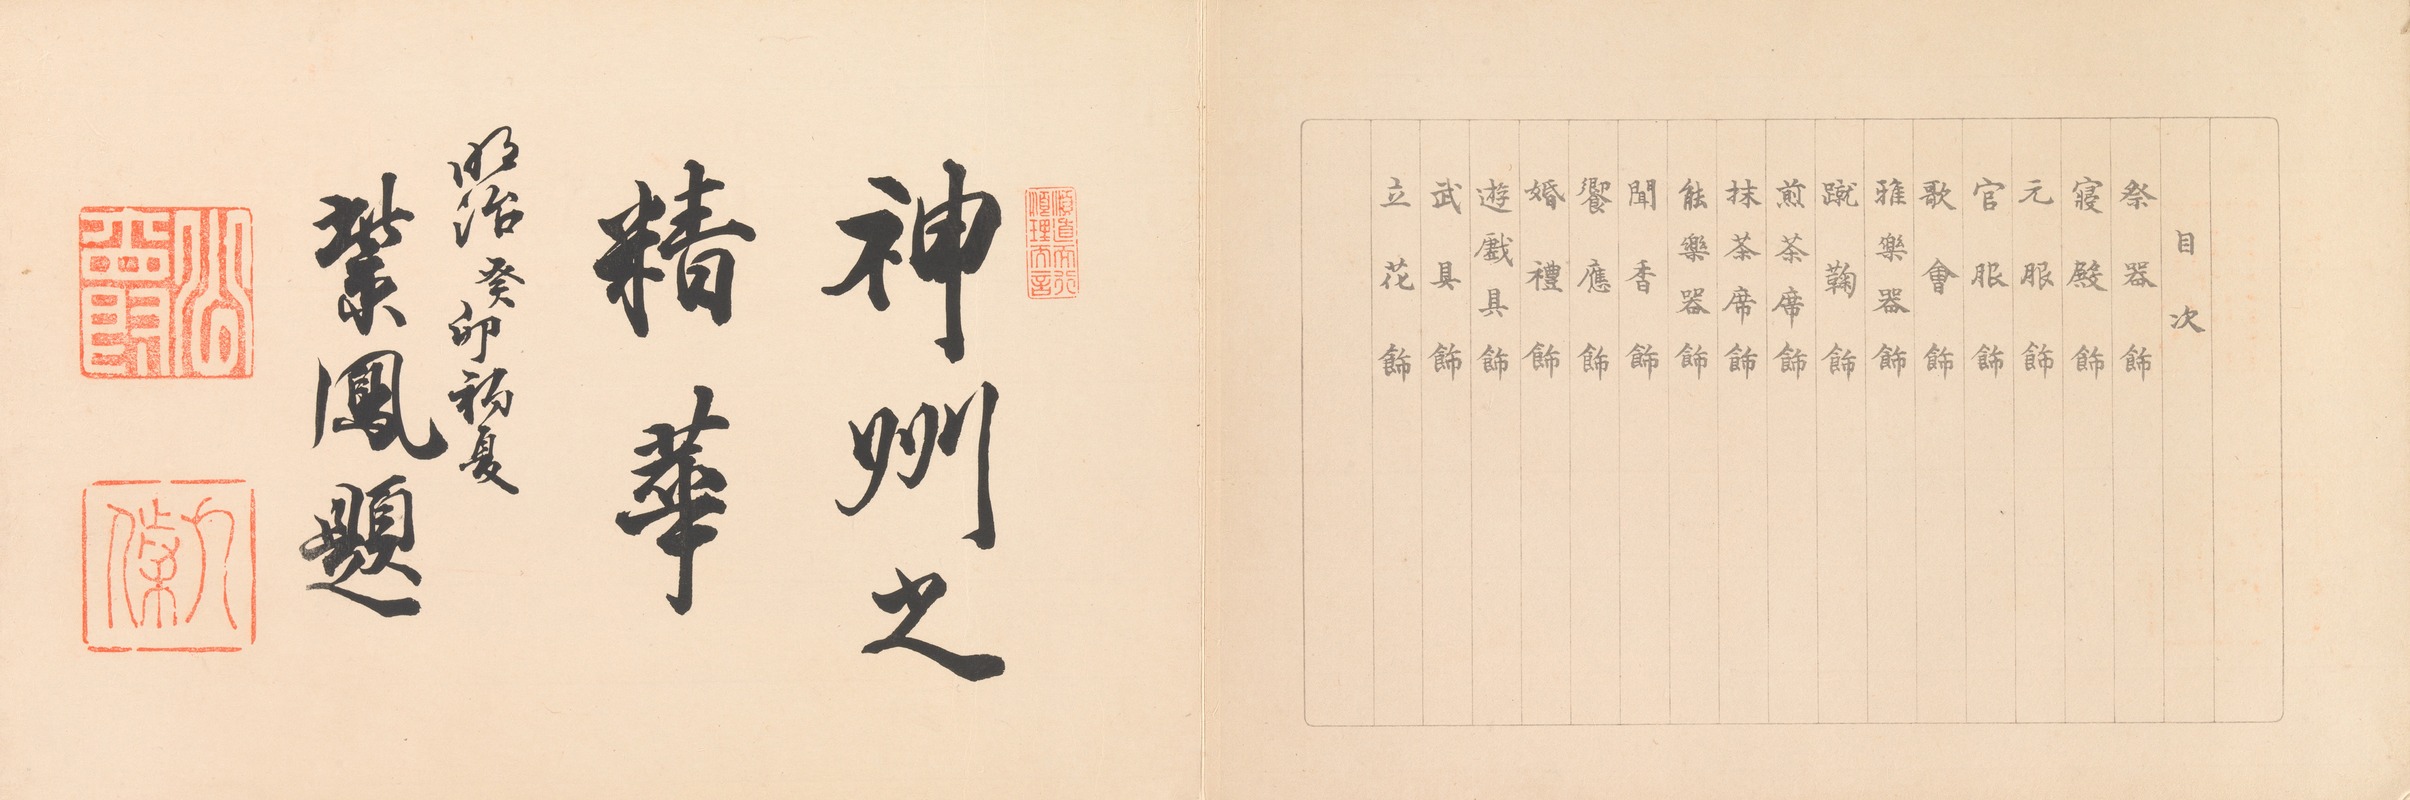 目次
祭器飾
寝殿飾
元服飾
官服飾
歌會飾
雅樂器飾
蹴鞠飾
煎茶席飾
抹茶席飾
能樂器飾
聞香飾
饗應飾
婚禮飾
遊戲具飾
武具飾
立花飾
神州之
精華
明治癸卯初夏
鳳題